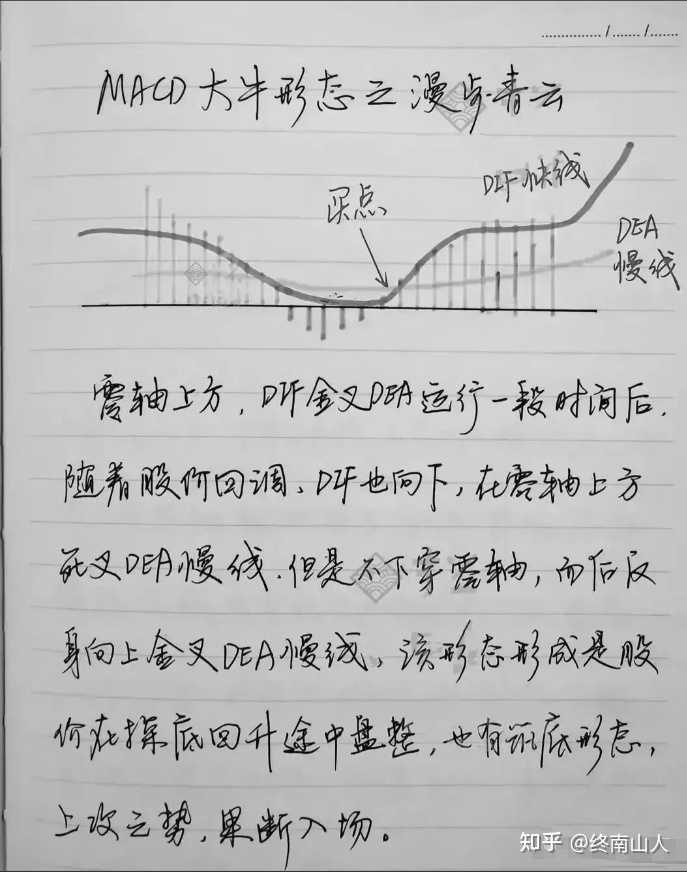 ....../....../......
MACD大牛形态之漫步青云
DIF快线
买点
DEA
慢线
零轴上方，DIF金叉DEA运行一段时间后，
随着股价回调，DIF也向下，在零轴上方
死叉DEA慢线，但是不下穿零轴，而后反
身向上金叉DEA慢线，该形态形成是股
价在探底回升途中盘整，也有筑底形态，
上攻之势，果断入场。
知乎 @终南山人